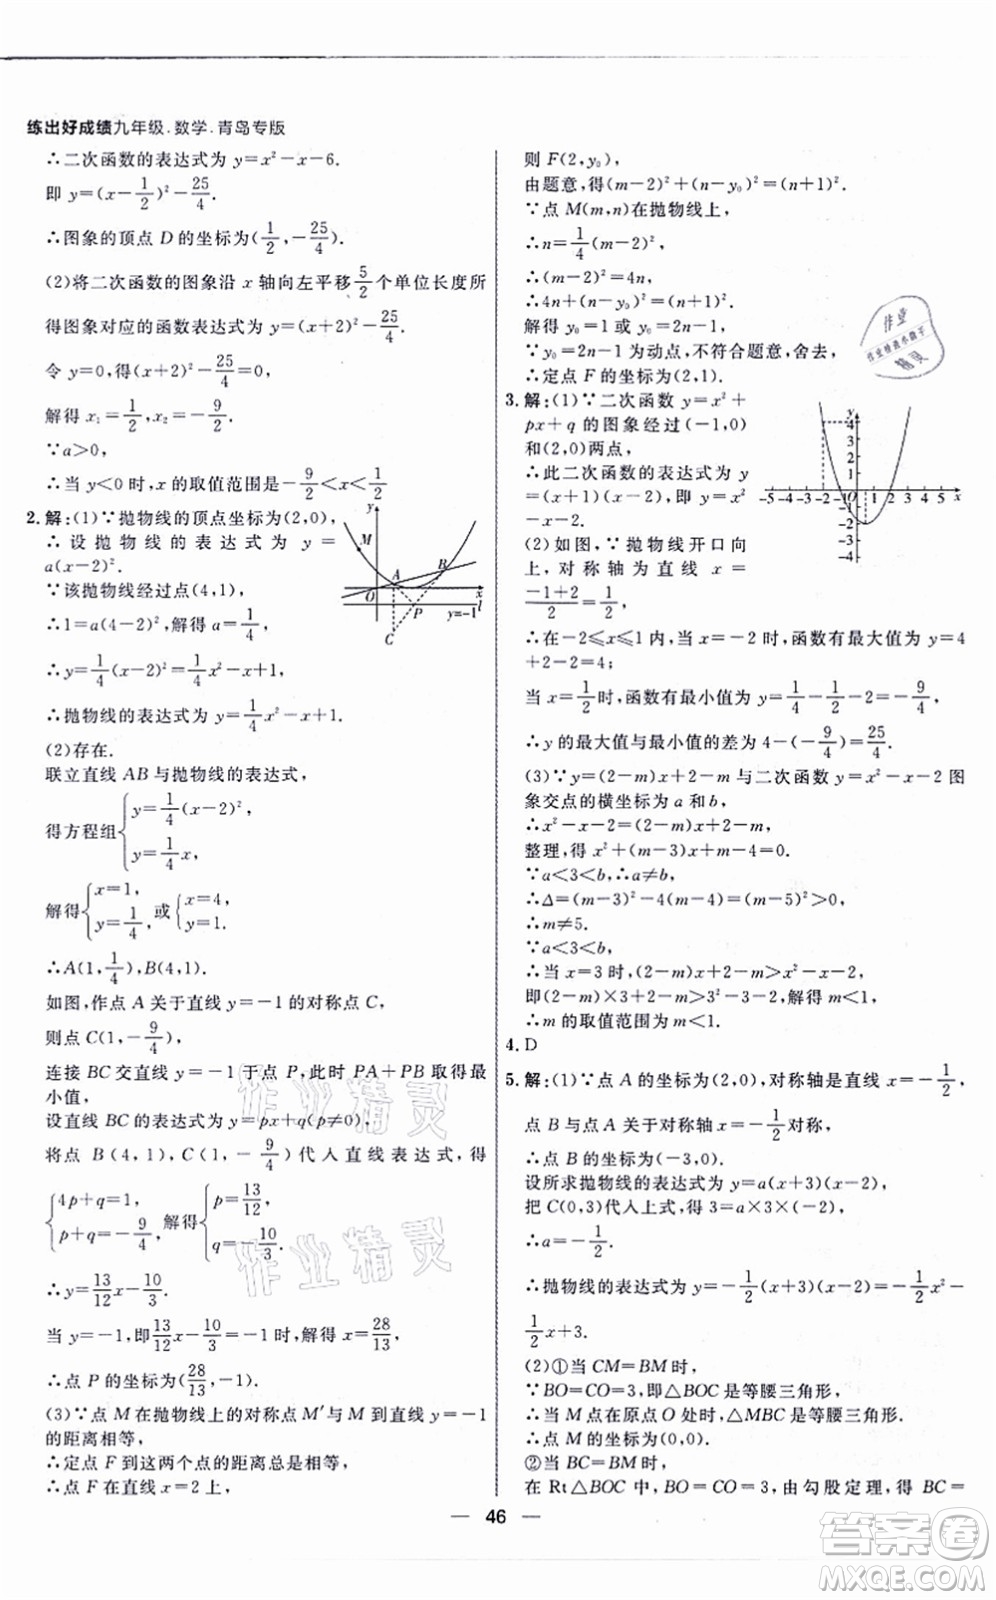 练出好成绩九年级.数学.青岛专版
∴二次函数的表达式为 y=x²-x-6.
即 y=(x-1/2)²-25/4.
∴图象的顶点 D 的坐标为(1/2,-25/4).
(2)将二次函数的图象沿 x 轴向左平移5/2个单位长度所
得图象对应的函数表达式为 y=(x+2)²-25/4.
令 y=0,得(x+2)²-25/4=0,
解得 x₁=1/2,x₂=-9/2.
∵a>0,
∴当 y<0时,x 的取值范围是-9/2<x<1/2
2.解:(1)∵抛物线的顶点坐标为(2,0),
∴设抛物线的表达式为 y=
a(x-2)².
∵该抛物线经过点(4,1),
∴1=a(4-2)²,解得 a=1/4,
∴y=1/4(x-2)²=1/4x²-x+1,
∴抛物线的表达式为 y=1/4x²-x+1.
(2)存在.
联立直线 AB 与抛物线的表达式,
得方程组{y=1/4(x-2)²,
y=1/4x,
解得{x=1, y=1/4, 或{x=4, y=1.
∴A(1,1/4),B(4,1).
如图,作点 A 关于直线 y=-1 的对称点 C,
则点 C(1,-9/4),
连接 BC 交直线 y=-1 于点 P,此时 PA+PB 取得最
小值,
设直线 BC 的表达式为 y=px+q(p≠0),
将点 B(4,1),C(1,-9/4)代入直线表达式,得
{4p+q=1, p+q=-9/4, 解得{p=13/12, q=-10/3.
∴y=13/12x-10/3.
当 y=-1,即13/12x-10/3=-1时,解得 x=28/13,
∴点 P 的坐标为(28/13,-1).
(3)∵点 M 在抛物线上的对称点 M′与 M 到直线 y=-1
的距离相等,
∴定点 F 到这两个点的距离总是相等,
∴点 F 在抛物线的对称轴直线 x=2 上,
y
M
A
B
O
x
P
y=-1
l
C
则 F(2,y₀),
由题意,得(m-2)²+(n-y₀)²=(n+1)².
∵点 M(m,n)在抛物线上,
∴n=1/4(m-2)²,
∴(m-2)²=4n,
∴4n+(n-y₀)²=(n+1)².
解得 y₀=1 或 y₀=2n-1,
∵y₀=2n-1 为动点,不符合题意,舍去,
∴定点 F 的坐标为(2,1).
3.解:(1)∵二次函数 y=x²+
px+q 的图象经过(-1,0)
和(2,0)两点,
∴此二次函数的表达式为 y
=(x+1)(x-2),即 y=x²
-x-2.
(2)如图,∵抛物线开口向
上,对称轴为直线 x=
(-1+2)/2=1/2,
y
4
3
2
1
-5-4-3-2-1 O 1 2 3 4 5 x
-1
-2
-3
-4
∴在-2≤x≤1内,当 x=-2 时,函数有最大值为 y=4
+2-2=4;
当 x=1/2时,函数有最小值为 y=1/4-1/2-2=-9/4,
∴y 的最大值与最小值的差为 4-(-9/4)=25/4.
(3)∵y=(2-m)x+2-m 与二次函数 y=x²-x-2 图
象交点的横坐标为 a 和 b,
∴x²-x-2=(2-m)x+2-m,
整理,得 x²+(m-3)x+m-4=0.
∵a<3<b,∴a≠b,
∴Δ=(m-3)²-4(m-4)=(m-5)²>0,
∴m≠5.
∵a<3<b,
∴当 x=3 时,(2-m)x+2-m>x²-x-2,
即(2-m)×3+2-m>3²-3-2,解得 m<1.
∴m 的取值范围为 m<1.
4.D
5.解:(1)∵点 A 的坐标为(2,0),对称轴是直线 x=-1/2,
点 B 与点 A 关于对称轴 x=-1/2对称,
∴点 B 的坐标为(-3,0).
设所求抛物线的表达式为 y=a(x+3)(x-2),
把 C(0,3)代入上式,得 3=a×3×(-2),
∴a=-1/2,
∴抛物线的表达式为 y=-1/2(x+3)(x-2)=-1/2x²-
1/2x+3.
(2)①当 CM=BM 时,
∵BO=CO=3,即△BOC 是等腰三角形,
∴当点 M 在原点 O 处时,△MBC 是等腰三角形.
∴点 M 的坐标为(0,0).
②当 BC=BM 时,
在 Rt△BOC 中,BO=CO=3,由勾股定理,得 BC=
46
作业精灵
作业精灵
作业
作业精选小助手
精灵
答案圈
MXQE.COM